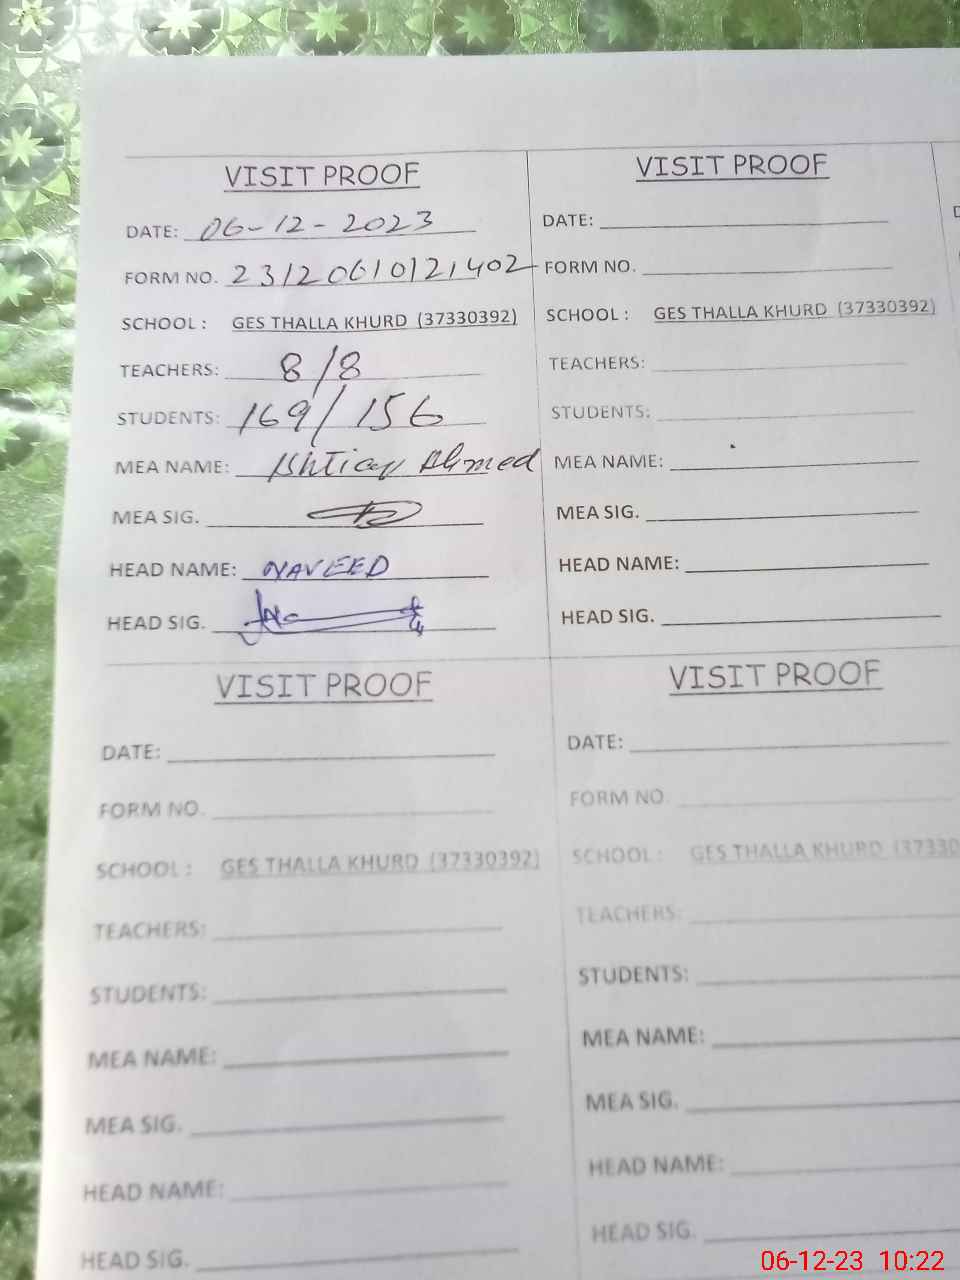 VISIT PROOF
DATE: 06-12-2023
FORM NO. 23120610121402
SCHOOL : GES THALLA KHURD (37330392)
TEACHERS: 8/8
STUDENTS: 169/156
MEA NAME: Ishtiaq Ahmed
MEA SIG.
HEAD NAME: NAVEED
HEAD SIG.
VISIT PROOF
DATE:
FORM NO.
SCHOOL : GES THALLA KHURD (37330392)
TEACHERS:
STUDENTS:
MEA NAME:
MEA SIG.
HEAD NAME:
HEAD SIG.
VISIT PROOF
DATE:
FORM NO.
SCHOOL : GES THALLA KHURD (37330392)
TEACHERS:
STUDENTS:
MEA NAME:
MEA SIG.
HEAD NAME:
HEAD SIG.
VISIT PROOF
DATE:
FORM NO.
SCHOOL : GES THALLA KHURD (37330
TEACHERS:
STUDENTS:
MEA NAME:
MEA SIG.
HEAD NAME:
HEAD SIG.
06-12-23 10:22